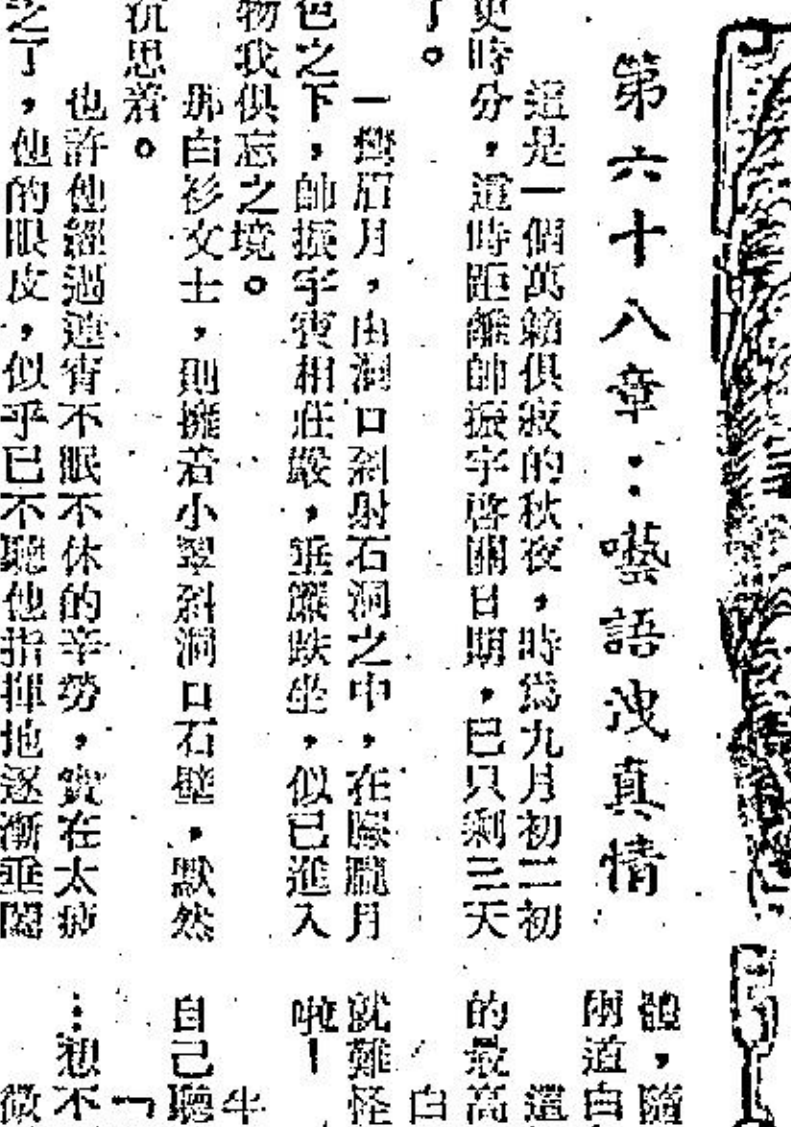 第六十八章：囈語洩真情
這是一個萬籟俱寂的秋夜，時爲九月初二初
更時分，這時距離帥振宇啓關日期，已只剩三天
了。
一彎眉月，由洞口斜射石洞之中，在朦朧月
色之下，帥振宇寶相莊嚴，垂簾趺坐，似已進入
物我俱忘之境。
那白衫文士，則擁着小翠斜洞口石壁，默然
沉思着。
也許他經過連宵不眠不休的辛勞，實在太疲
乏了，他的眼皮，似乎已不聽他指揮地逐漸垂闔
體，隨
兩道白
這
的最高
白
就難怪
啦！
半
自己聽
「
…想不
微